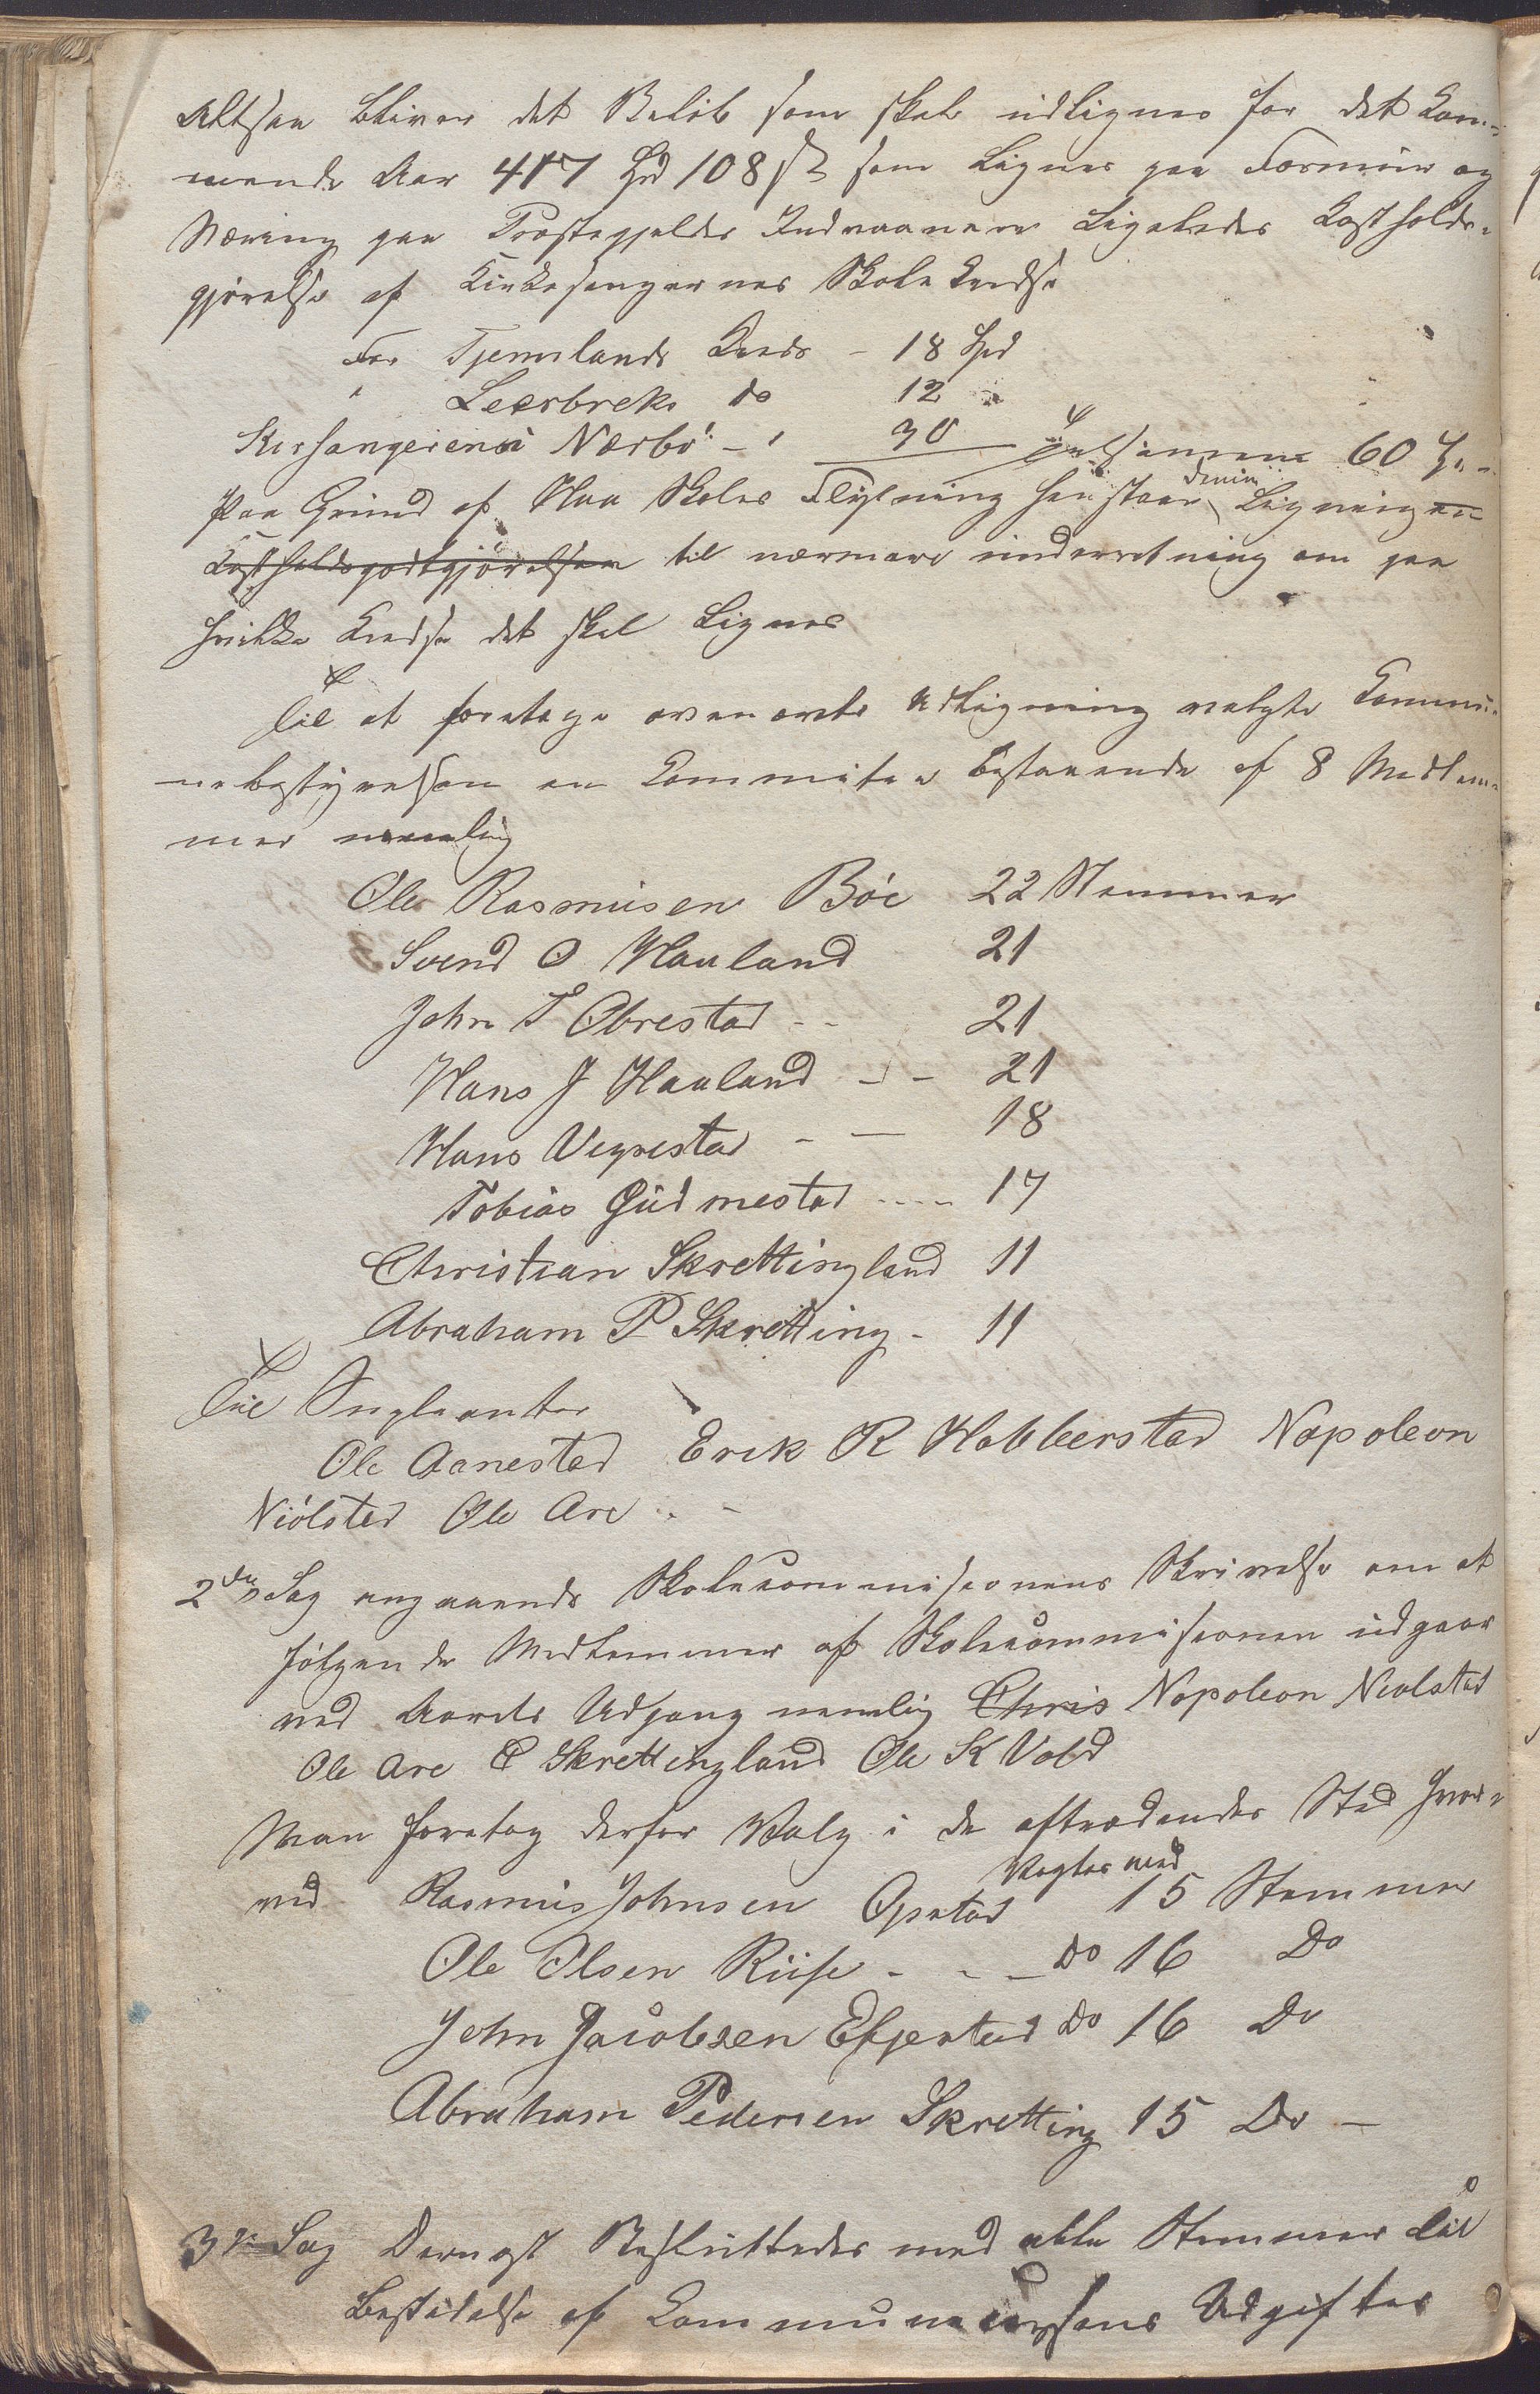 Altsaa bliver det Beløb som skal udlignes for det kom-
mende Aar 417 Spd 108 ß som Lignes paa Formue og
Næring paa Præstegjeldets Indvaanere Ligeledes Kostholds-
gjørelse af Kirkesangernes Skole Kredse
For Tjemslands Kreds - 18 Spd
" Leerbreks do 12 "
Kirsangeren i Nærbö - " 30 Tilsammen 60 Sp.
Paa Grund af Haa Skoles Flytning henstaar denne Ligningen
Kostholdsgodtgjörelsen til nærmere underretning om paa
hvilke Kredse det skal Lignes
Til at foretage ovenævnte Udligning valgte Commu-
nebestyrelsen en Commitee bestaaende af 8 Medlem-
mer nemlig
Ole Rasmusen Böe 22 Stemmer
Svend O Haaland 21
John T Obrestad - - 21
Hans J Haaland - - 21
Hans Vigrestad - - 18
Tobias Gudmestad ---- 17
Christian Skrettingland 11
Abraham P Skretting - 11
Til Supleanter
Ole Aanestad Erik R Hobberstad Napoleon
Niölstad Ole Are -
2den Sag angaaende Skolecommisionens Skrivelse om at
følgende Medlemmer af Skolecommisionen udgaar
ved Aarets Udgang nemlig Chris Napoleon Niolstad
Ole Are C Skrettingland Ole K Vold
Man foretog derfor Valg i de aftrædendes Sted hvor-
ved Rasmus Johnsen Opstad Valgtes med 15 Stemmer
Ole Olsen Riise - - - Do 16 Do
John Jacobsen Efjestad Do 16 Do
Abraham Pedersen Skretting 15 Do -
3die Sag Dernæst Besluttedes med alle Stemmer til
Bestridelse af Communecassens Udgifter